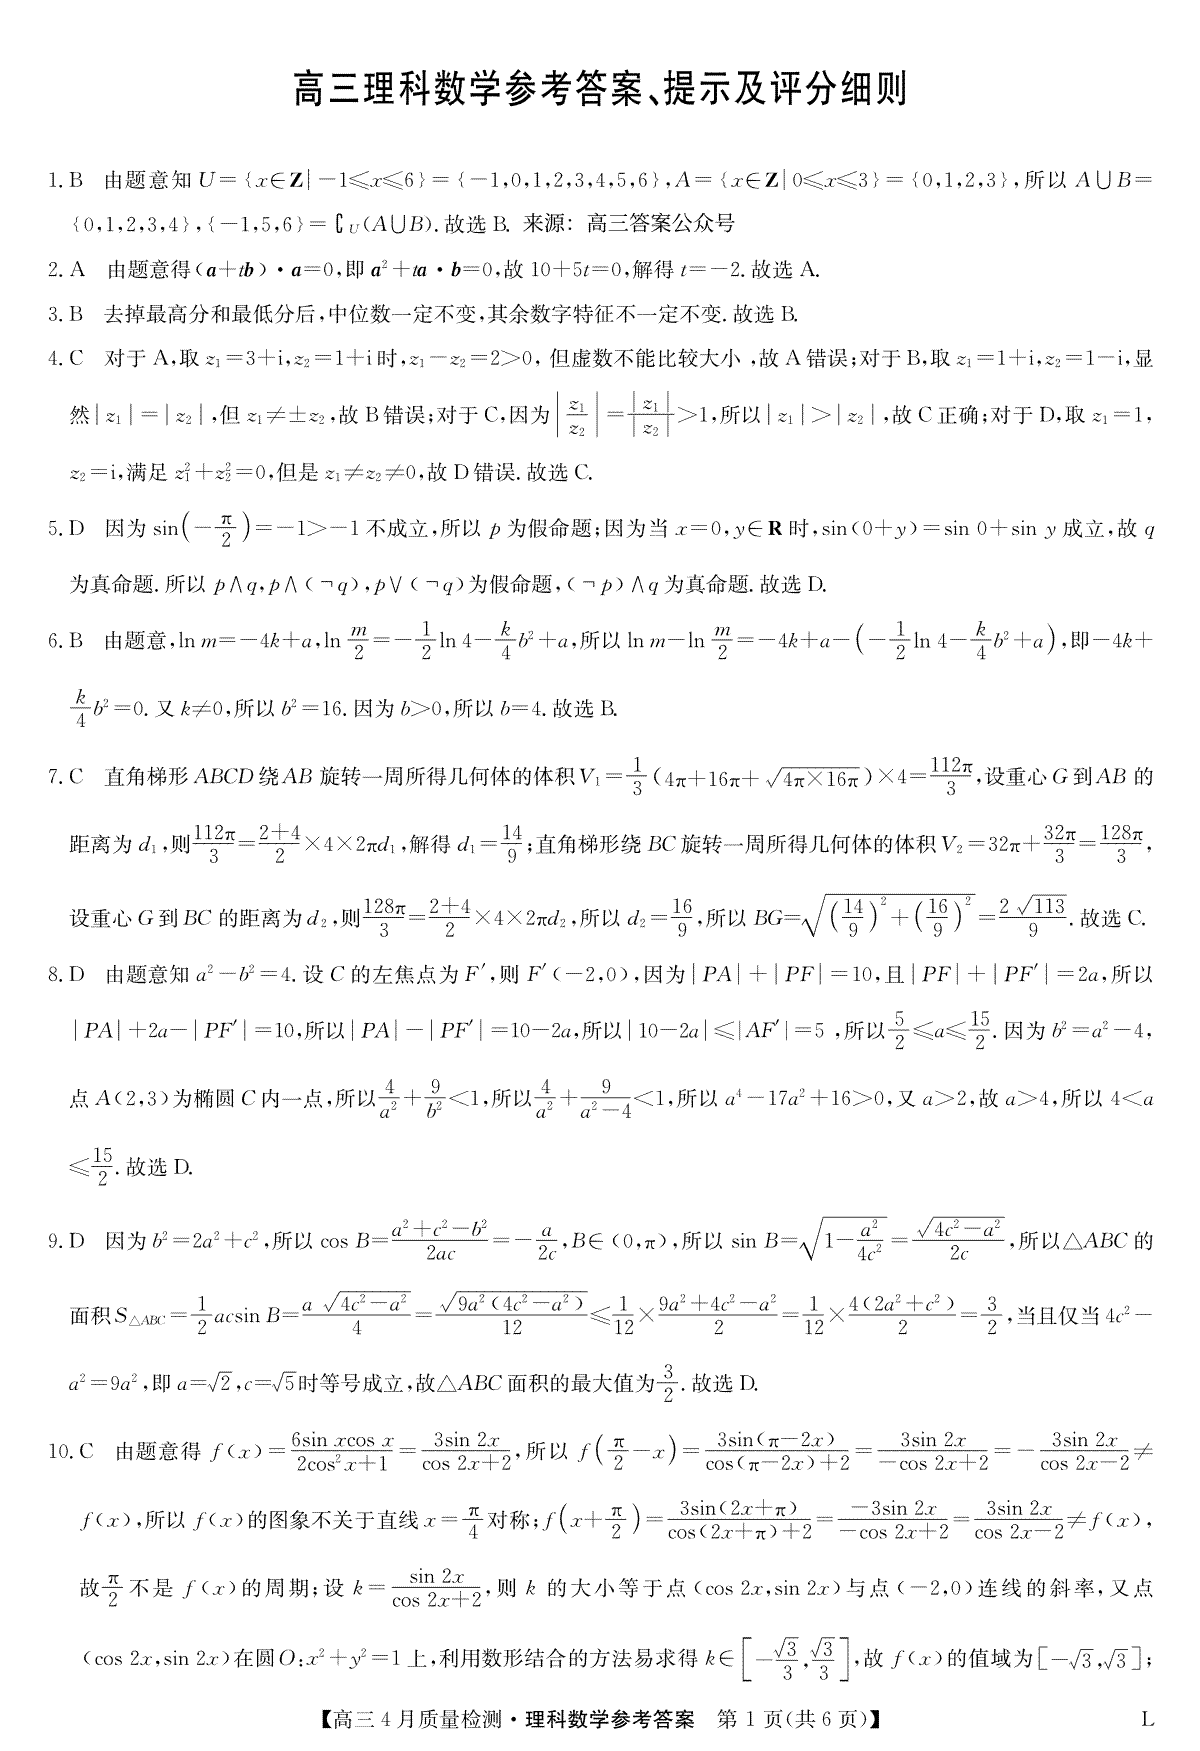 高三理科数学参考答案、提示及评分细则
1. B 由题意知 U={x∈Z|-1≤x≤6}={-1,0,1,2,3,4,5,6},A={x∈Z|0≤x≤3}={0,1,2,3},所以 A∪B=
{0,1,2,3,4},{-1,5,6}=∁U(A∪B). 故选 B. 来源: 高三答案公众号
2. A 由题意得(a+tb)·a=0,即 a²+ta·b=0,故 10+5t=0,解得 t=-2. 故选 A.
3. B 去掉最高分和最低分后,中位数一定不变,其余数字特征不一定不变. 故选 B.
4. C 对于 A,取 z₁=3+i,z₂=1+i 时,z₁-z₂=2>0, 但虚数不能比较大小 ,故 A 错误;对于 B,取 z₁=1+i,z₂=1-i,显
然|z₁|=|z₂|,但 z₁≠±z₂,故 B 错误;对于 C,因为|z₁/z₂|=|z₁|/|z₂|>1,所以|z₁|>|z₂|,故 C 正确;对于 D,取 z₁=1,
z₂=i,满足 z₁²+z₂²=0,但是 z₁≠z₂≠0,故 D 错误. 故选 C.
5. D 因为 sin(-π/2)=-1>-1 不成立,所以 p 为假命题;因为当 x=0,y∈R 时,sin(0+y)=sin 0+sin y 成立,故 q
为真命题. 所以 p∧q,p∧(¬q),p∨(¬q)为假命题,(¬p)∧q 为真命题. 故选 D.
6. B 由题意,ln m=-4k+a,ln m/2=-1/2 ln 4-k/4 b²+a,所以 ln m-ln m/2=-4k+a-(-1/2 ln 4-k/4 b²+a),即-4k+
k/4 b²=0. 又 k≠0,所以 b²=16. 因为 b>0,所以 b=4. 故选 B.
7. C 直角梯形 ABCD 绕 AB 旋转一周所得几何体的体积 V₁=1/3(4π+16π+√(4π×16π))×4=112π/3,设重心 G 到 AB 的
距离为 d₁,则 112π/3=(2+4)/2×4×2πd₁,解得 d₁=14/9;直角梯形绕 BC 旋转一周所得几何体的体积 V₂=32π+32π/3=128π/3,
设重心 G 到 BC 的距离为 d₂,则 128π/3=(2+4)/2×4×2πd₂,所以 d₂=16/9,所以 BG=√((14/9)²+(16/9)²)=2√113/9. 故选 C.
8. D 由题意知 a²-b²=4. 设 C 的左焦点为 F′,则 F′(-2,0),因为|PA|+|PF|=10,且|PF|+|PF′|=2a,所以
|PA|+2a-|PF′|=10,所以|PA|-|PF′|=10-2a,所以|10-2a|≤|AF′|=5 ,所以 5/2≤a≤15/2. 因为 b²=a²-4,
点 A(2,3)为椭圆 C 内一点,所以 4/a²+9/b²<1,所以 4/a²+9/(a²-4)<1,所以 a⁴-17a²+16>0,又 a>2,故 a>4,所以 4<a
≤15/2. 故选 D.
9. D 因为 b²=2a²+c²,所以 cos B=(a²+c²-b²)/2ac=-a/2c,B∈(0,π),所以 sin B=√(1-a²/4c²)=√(4c²-a²)/2c,所以△ABC 的
面积 S△ABC=1/2 acsin B=a√(4c²-a²)/4=√(9a²(4c²-a²))/12≤1/12×(9a²+4c²-a²)/2=1/12×4(2a²+c²)/2=3/2,当且仅当 4c²-
a²=9a²,即 a=√2,c=√5时等号成立,故△ABC 面积的最大值为3/2. 故选 D.
10. C 由题意得 f(x)=6sin xcos x/(2cos²x+1)=3sin 2x/(cos 2x+2),所以 f(π/2-x)=3sin(π-2x)/(cos(π-2x)+2)=3sin 2x/(-cos 2x+2)=-3sin 2x/(cos 2x-2)≠
f(x),所以 f(x)的图象不关于直线 x=π/4 对称;f(x+π/2)=3sin(2x+π)/(cos(2x+π)+2)=-3sin 2x/(-cos 2x+2)=3sin 2x/(cos 2x-2)≠f(x),
故π/2 不是 f(x)的周期;设 k=sin 2x/(cos 2x+2),则 k 的大小等于点(cos 2x,sin 2x)与点(-2,0)连线的斜率,又点
(cos 2x,sin 2x)在圆 O:x²+y²=1 上,利用数形结合的方法易求得 k∈[-√3/3,√3/3],故 f(x)的值域为[-√3,√3];
【高三 4 月质量检测·理科数学参考答案 第 1 页(共 6 页)】 L